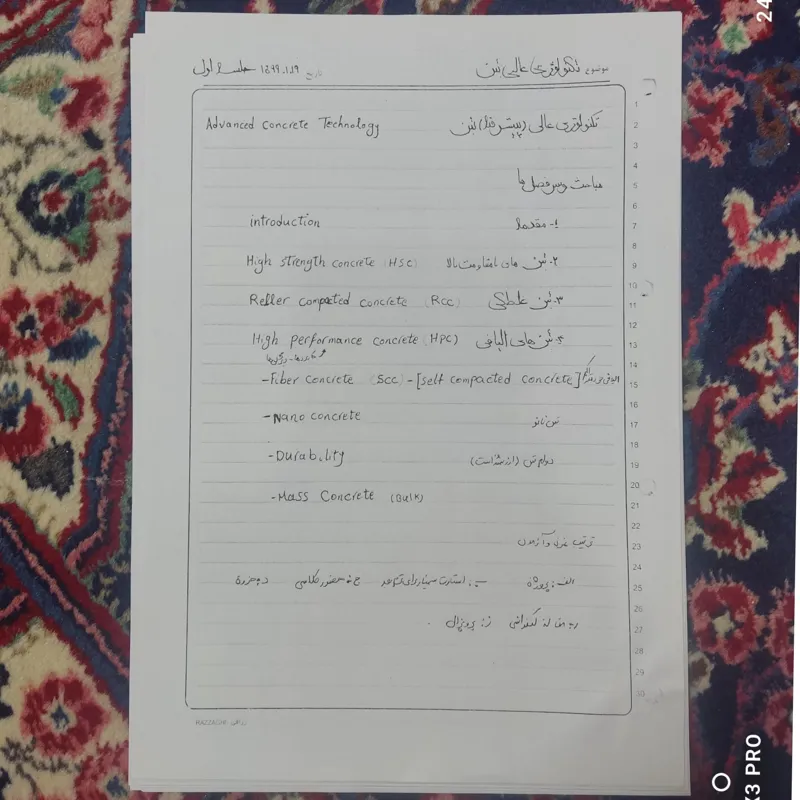 موضوع تکنولوژی عالی بتن تاریخ ۱۳۹۹.۱.۱۹ جلسه اول
تکنولوژی عالی (پیشرفته) بتن Advanced concrete Technology
مباحث و سرفصل ها
۱- مقدمه introduction
۲. بتن های با مقاومت بالا High strength concrete (HSC)
۳. بتن غلطکی Roller compacted concrete (RCC)
۴. بتن های الیافی High performance concrete (HPC)
-Fiber concrete (SCC) - [self compacted concrete]
بتن نانو -Nano concrete
دوام بتن -Durability
-Mass Concrete (Bulk)
ترتیب نمره و آزمون
الف: پروژه ب: ج: حضور کلاسی د: جزوه
ز:
1
2
3
4
5
6
7
8
9
10
11
12
13
14
15
16
17
18
19
20
21
22
23
24
25
26
27
28
29
30
24
X3 PRO